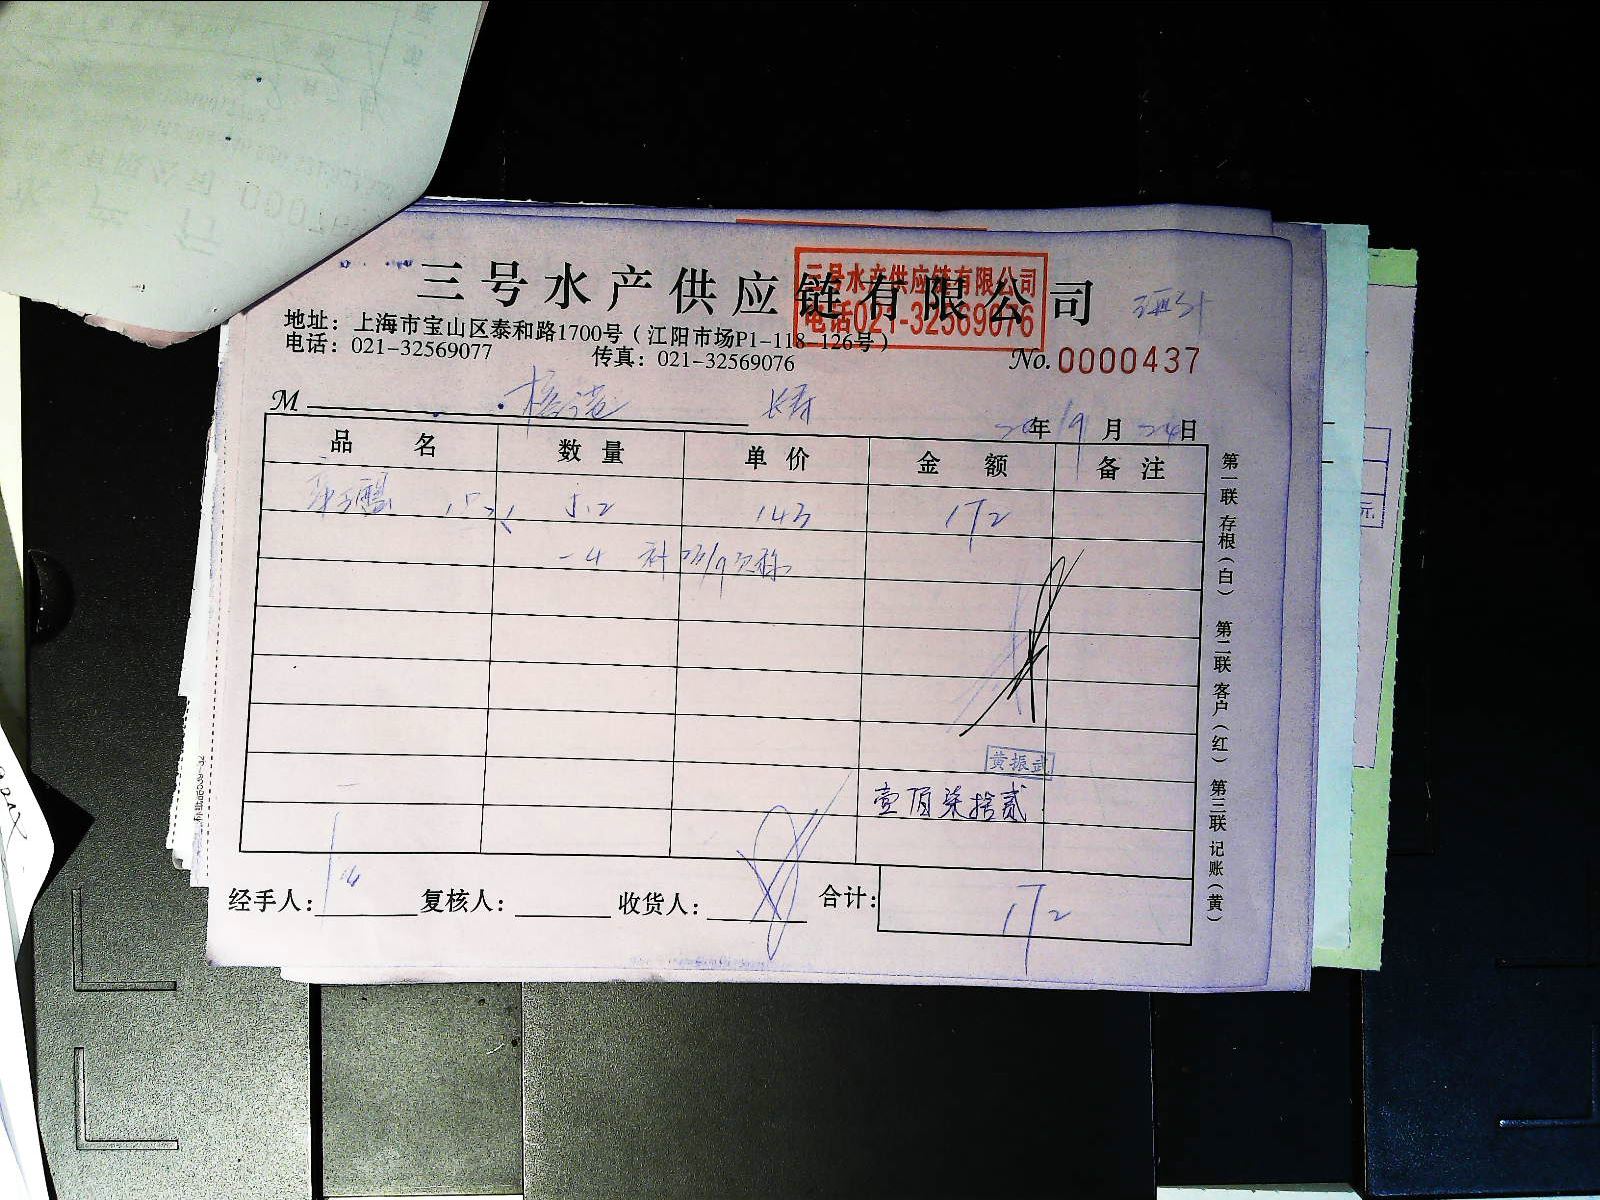 三号水产供应链有限公司
三号水产供应链有限公司
电话021-32569076
地址：上海市宝山区泰和路1700号（江阳市场P1-118-126号）
电话：021-32569077 传真：021-32569076
No.0000437
M
年 9月24日
品名 数量 单价 金额 备注
5.2 143 172
-4 补 23/9欠称
黄振武
壹佰柒拾贰
经手人： 复核人： 收货人： 合计： 172
第一联 存根（白） 第二联 客户（红） 第三联 记账（黄）